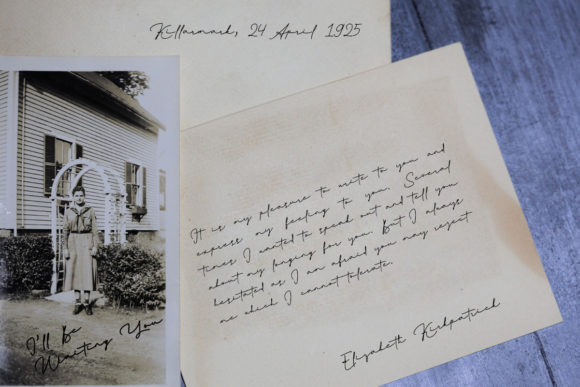 Killarmark, 24 April 1925
It is my pleasure to write to you and
express my feeling to you. Several
times I wanted to speak out and tell you
about my longing for you. But I always
hesitated as I am afraid you may reject
me which I cannot tolerate.
Elizabeth Kirkpatrick
I'll Be
Waiting You